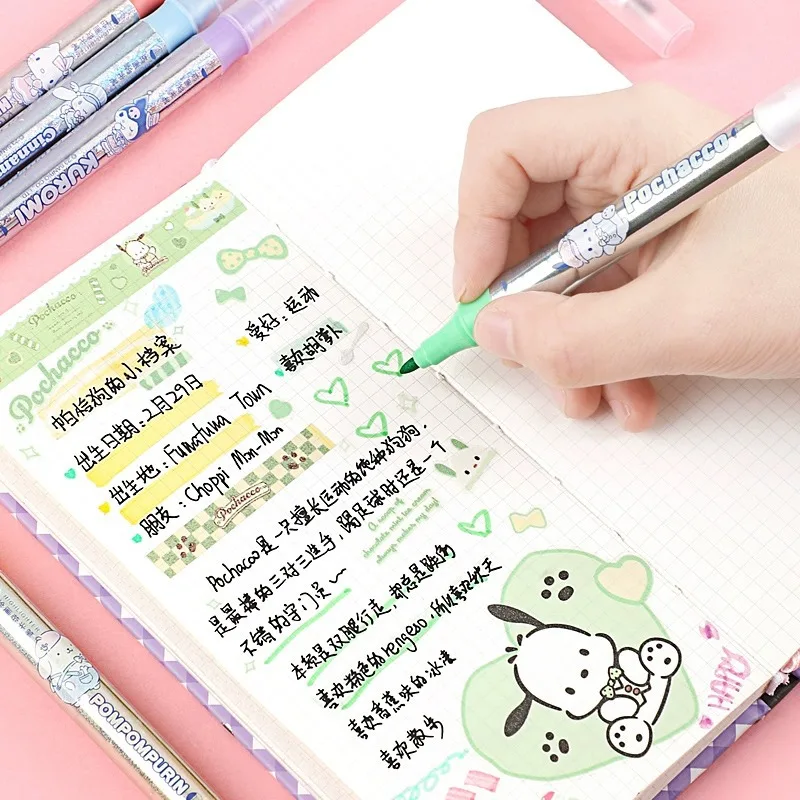 KUROMI
Pochacco
Pochacco
Pochacco
帕恰狗的小档案
爱好:运动
喜欢胡萝卜
出生日期:2月29日
出生地:Fuwafuwa Town
朋友:Choppi Mon-Mon
Pochacco
Pochacco是一只擅长运动的
狗狗.
是最棒的三对三选手,踢足球时还是一个
不错的守门员~
A scoop of
chocolate mint ice cream
always makes my day!
本领是双腿行走,
喜欢
喜欢香蕉味的冰
喜欢散步
HAPPY
POMPOMPURIN